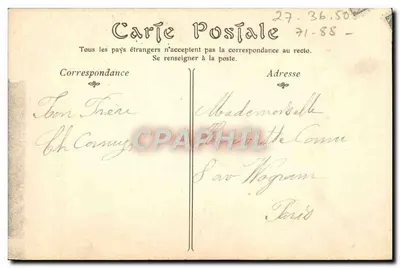 27-36-50
71-88-
Carte Postale
Tous les pays étrangers n'acceptent pas la correspondance au recto.
Se renseigner à la poste.
Correspondance
Adresse
Ton Frère
Mademoiselle
Wagram
Paris
CPAPHIL.com